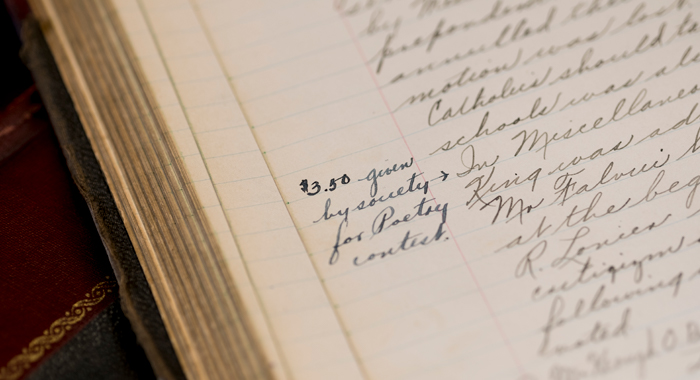 by
preponderan
annulled the
motion was lost
Catholics should
schools was als
$3.50 given
by society →
for Poetry
contest.
In Miscellaneo
King was ad
Mr Falvii
at the beg
R. Lonien
critizism
following
noted